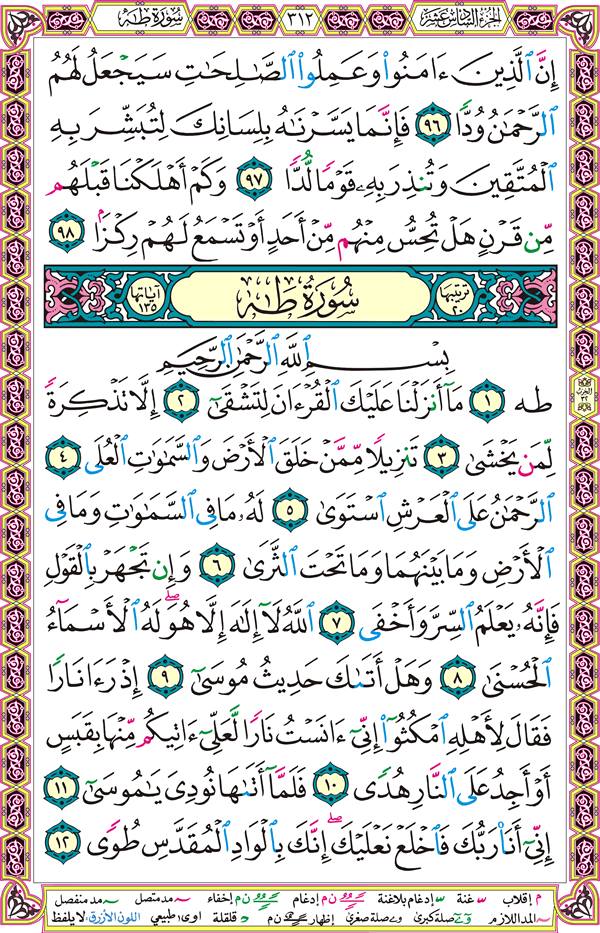 سُورَةُ طه
٣١٢
الجزء السادس عشر
إِنَّ ٱلَّذِينَ ءَامَنُوا۟ وَعَمِلُوا۟ ٱلصَّـٰلِحَـٰتِ سَيَجْعَلُ لَهُمُ
ٱلرَّحْمَـٰنُ وُدًّا ٩٦ فَإِنَّمَا يَسَّرْنَـٰهُ بِلِسَانِكَ لِتُبَشِّرَ بِهِ
ٱلْمُتَّقِينَ وَتُنذِرَ بِهِۦ قَوْمًا لُّدًّا ٩٧ وَكَمْ أَهْلَكْنَا قَبْلَهُم
مِّن قَرْنٍ هَلْ تُحِسُّ مِنْهُم مِّنْ أَحَدٍ أَوْ تَسْمَعُ لَهُمْ رِكْزًۢا ٩٨
ترتيبها ٢٠ سُورَةُ طه آياتها ١٣٥
بِسْمِ ٱللَّهِ ٱلرَّحْمَـٰنِ ٱلرَّحِيمِ
طه ١ مَآ أَنزَلْنَا عَلَيْكَ ٱلْقُرْءَانَ لِتَشْقَىٰٓ ٢ إِلَّا تَذْكِرَةً
لِّمَن يَخْشَىٰ ٣ تَنزِيلًا مِّمَّنْ خَلَقَ ٱلْأَرْضَ وَٱلسَّمَـٰوَٰتِ ٱلْعُلَى ٤
ٱلرَّحْمَـٰنُ عَلَى ٱلْعَرْشِ ٱسْتَوَىٰ ٥ لَهُۥ مَا فِى ٱلسَّمَـٰوَٰتِ وَمَا فِى
ٱلْأَرْضِ وَمَا بَيْنَهُمَا وَمَا تَحْتَ ٱلثَّرَىٰ ٦ وَإِن تَجْهَرْ بِٱلْقَوْلِ
فَإِنَّهُۥ يَعْلَمُ ٱلسِّرَّ وَأَخْفَى ٧ ٱللَّهُ لَآ إِلَـٰهَ إِلَّا هُوَ ۖ لَهُ ٱلْأَسْمَآءُ
ٱلْحُسْنَىٰ ٨ وَهَلْ أَتَىٰكَ حَدِيثُ مُوسَىٰٓ ٩ إِذْ رَءَا نَارًا
فَقَالَ لِأَهْلِهِ ٱمْكُثُوٓا۟ إِنِّىٓ ءَانَسْتُ نَارًا لَّعَلِّىٓ ءَاتِيكُم مِّنْهَا بِقَبَسٍ
أَوْ أَجِدُ عَلَى ٱلنَّارِ هُدًى ١٠ فَلَمَّآ أَتَىٰهَا نُودِىَ يَـٰمُوسَىٰٓ ١١
إِنِّىٓ أَنَا۠ رَبُّكَ فَٱخْلَعْ نَعْلَيْكَ ۖ إِنَّكَ بِٱلْوَادِ ٱلْمُقَدَّسِ طُوًى ١٢
م إقلاب غنة إدغام بلاغنة ن م إدغام ن م إخفاء مد متصل مد منفصل
المد اللازم صلة كبرى صلة صغرى إظهار ن م قلقلة اوى طبيعي اللون الأزرق: لا يلفظ